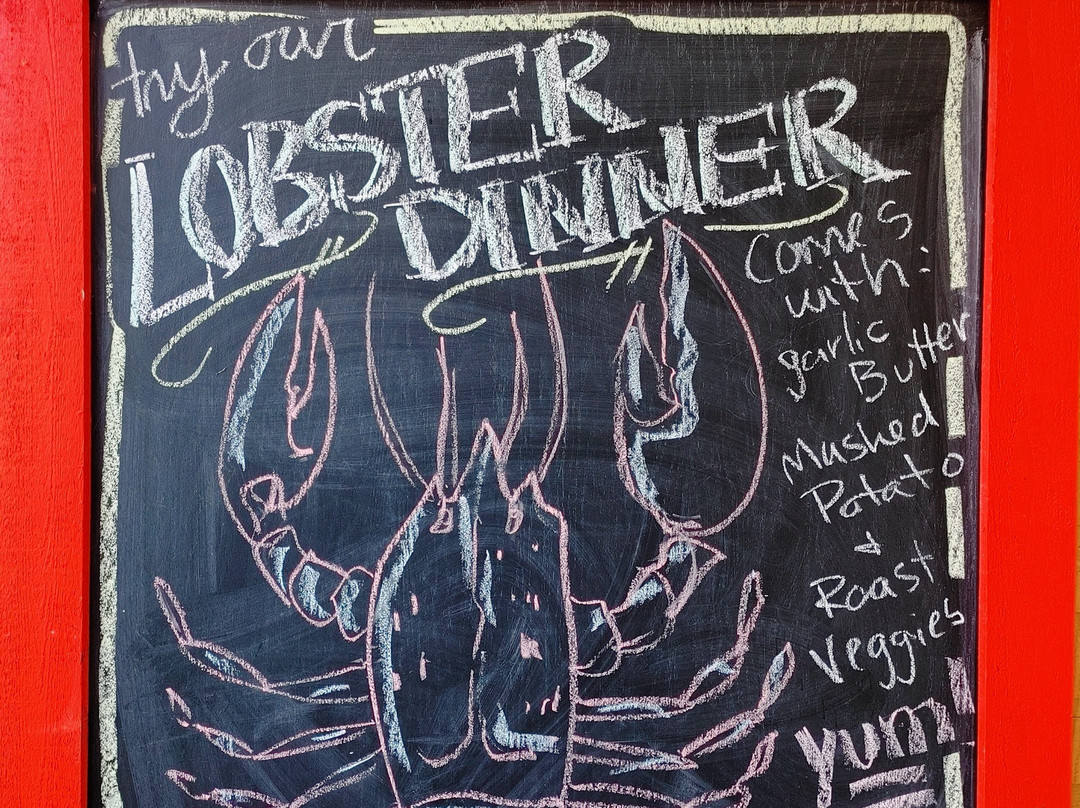 try our
LOBSTER
DINNER
Comes
with:
garlic
Butter
Mashed
Potato
+
Roast
Veggies
yum!